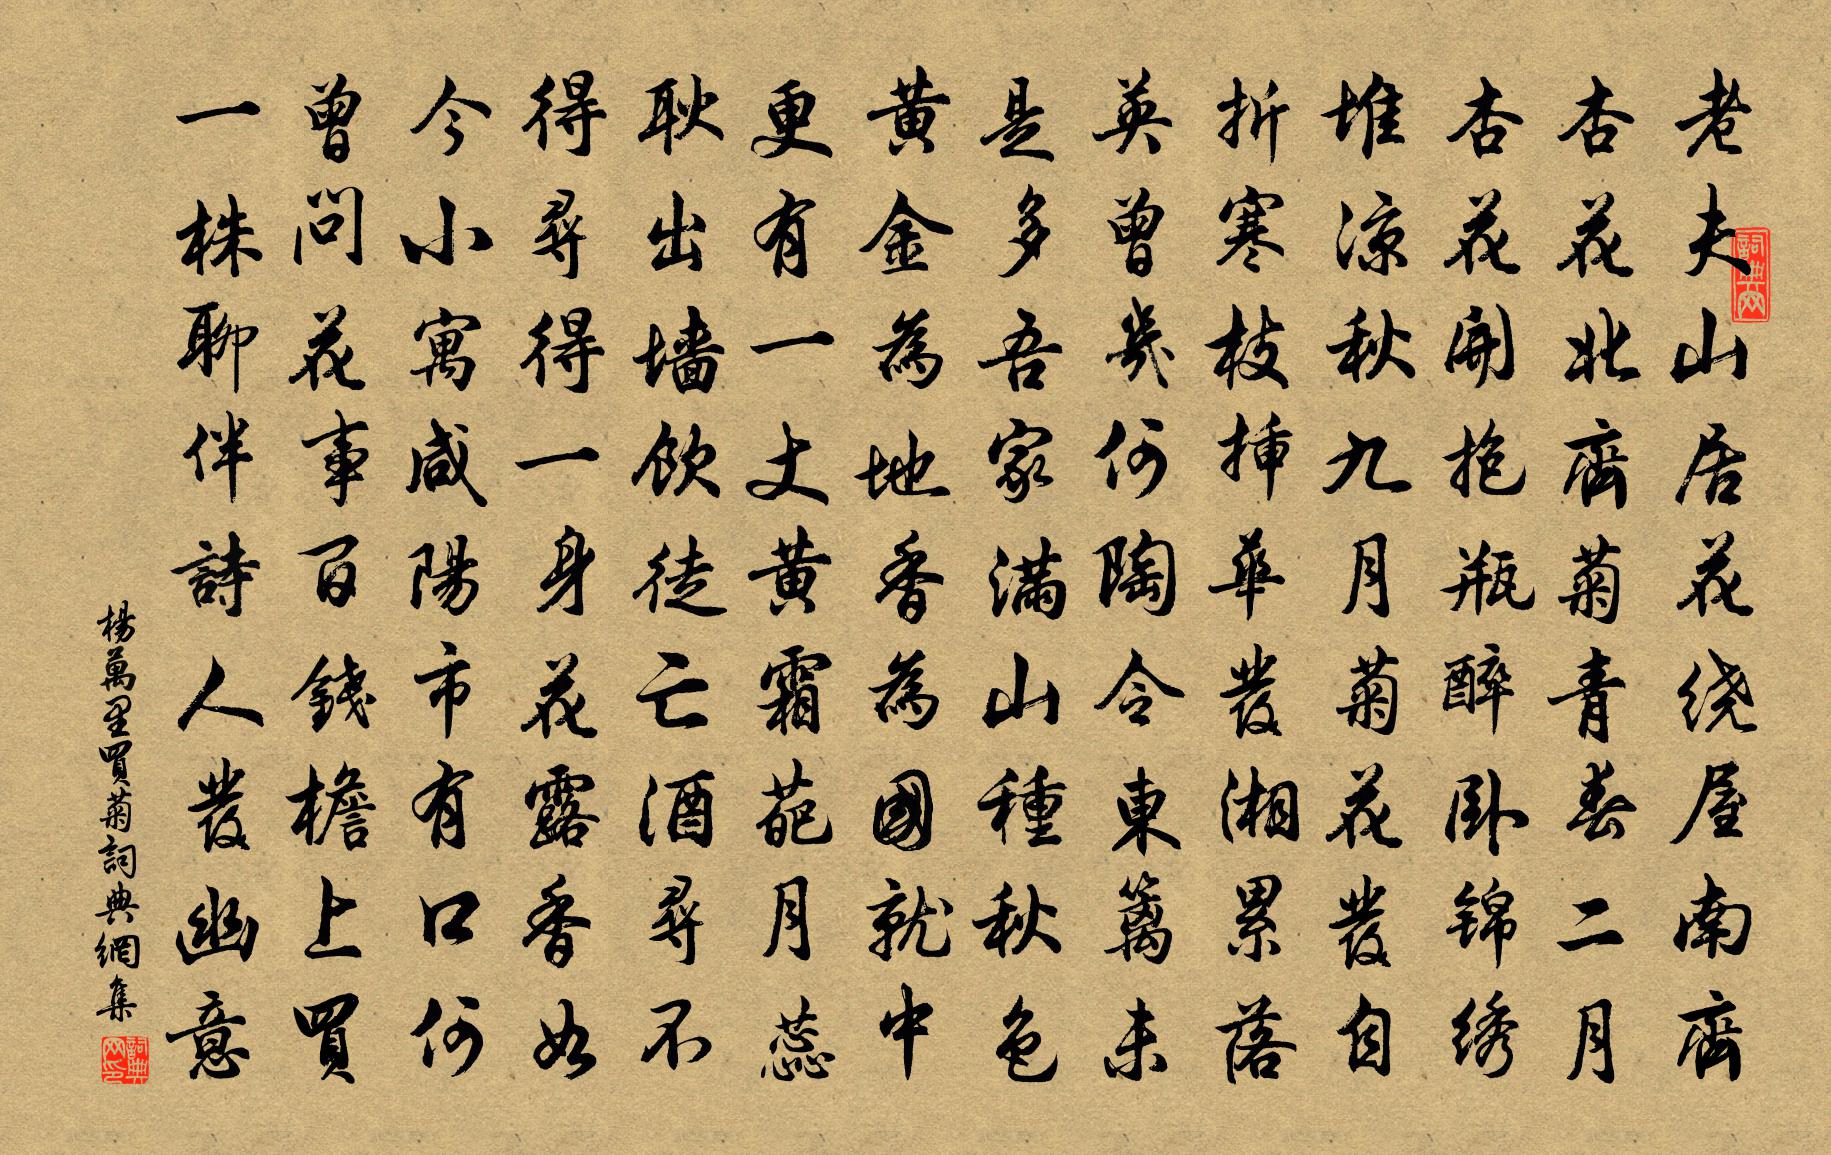 老夫山居花绕屋南齊
杏花北齊菊青春二月
杏花開抱瓶醉卧锦绣
堆凉秋九月菊花發自
折寒枝揷華發湘累落
英曾幾何陶令東籬未
是多吾家滿山種秋色
黄金為地香為國就中
更有一丈黄霜葩月蕊
耿出墙飲徒亡酒尋不
得尋得得一身花露香如
今小寓咸陽市有口何
曾問花事百錢檐上買
一株聊伴詩人發幽意
楊萬里買菊詞典網集
詞典网
詞典网印